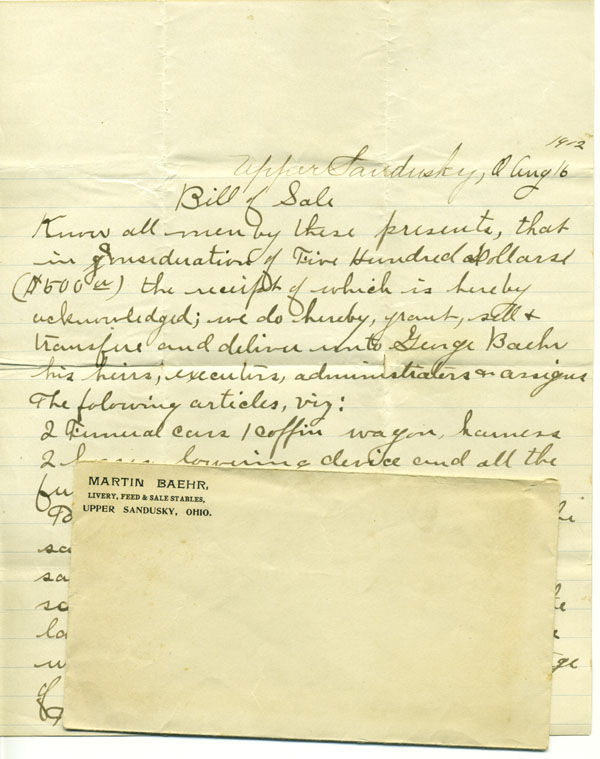 1912
Upper Sandusky, O Aug 16
Bill of Sale
Know all men by these presents, that
in Consideration of Five Hundred Dollarse
($500 00) the receipt of which is hereby
acknowledged; we do hereby, grant, sell &
transfire and deliver unto George Baehr
his heirs, executors, administraters & assigns
The folowing articles, viz:
2 Funeral cars 1 coffin wagon, harness
2 lowering device and all the
MARTIN BAEHR,
LIVERY, FEED & SALE STABLES,
UPPER SANDUSKY, OHIO.